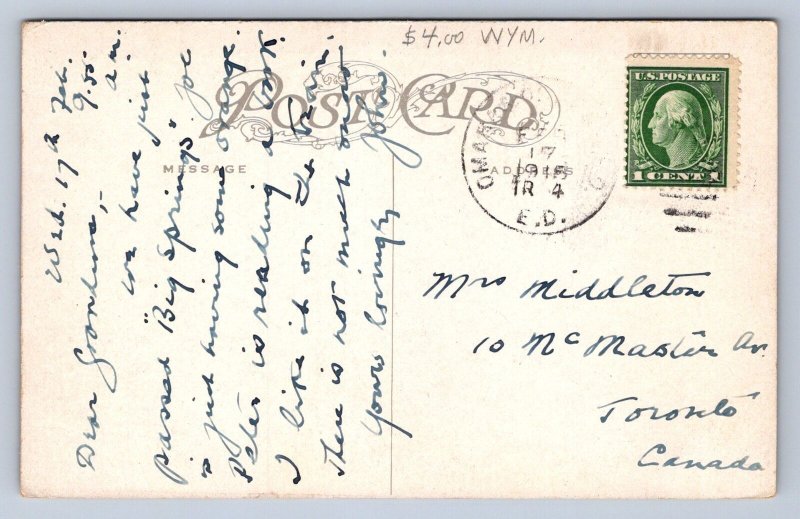 $4.00 WYM.
POST CARD
MESSAGE
ADDRESS
U.S. POSTAGE
1 CENT 1
OMAHA
17
1915
TR 4
E.D.
Wed. 17th Feb.
9.50 a.m.
Dear
we have just
passed "Big Springs". Joe
is just having some orange.
Peter is reading a book.
I like it on the train.
There is not much snow
Yours lovingly John.
Mrs Middleton
10 McMaster Av.
Toronto
Canada